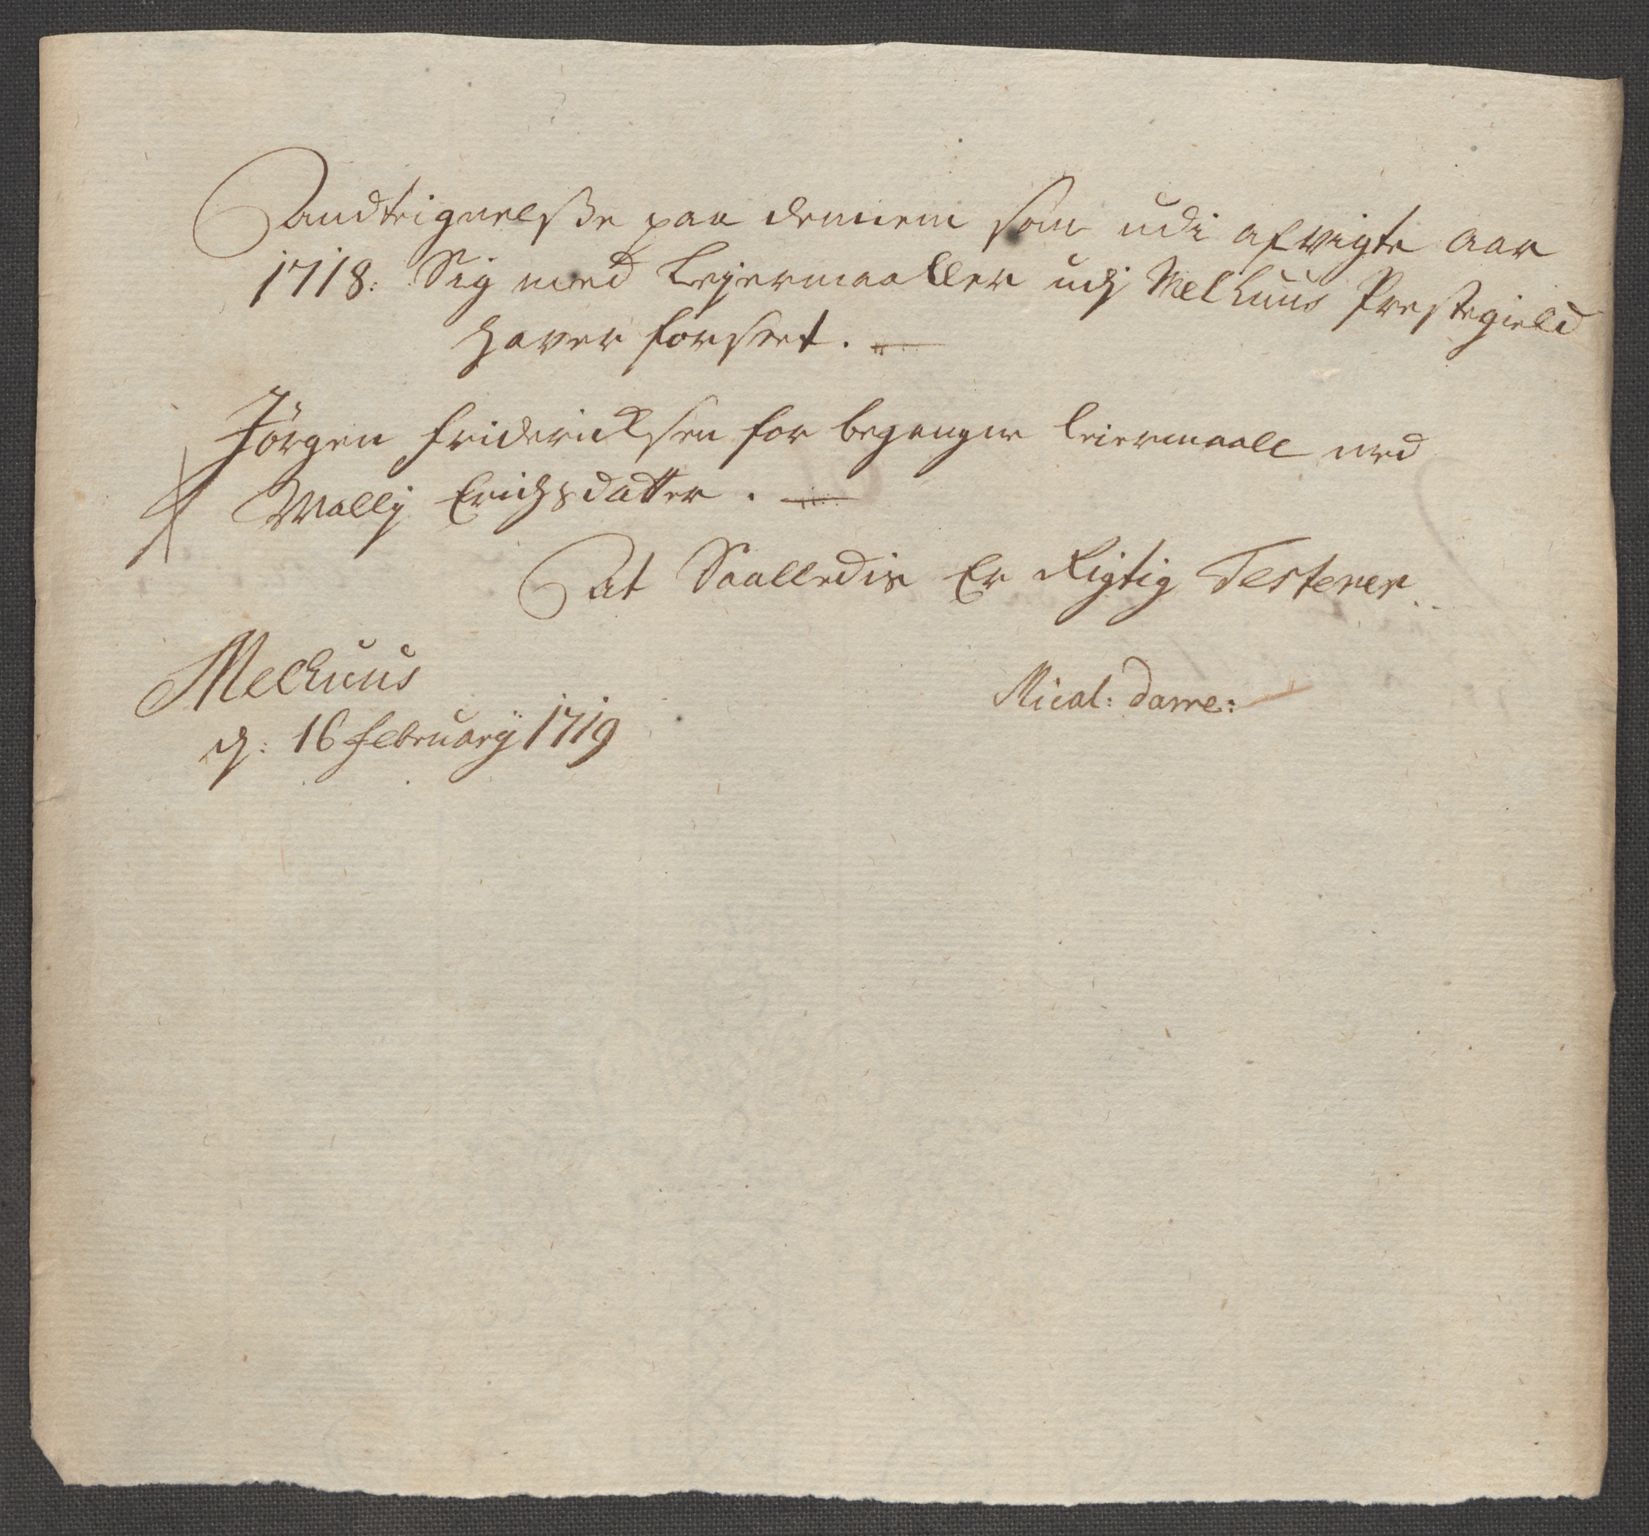 Andteignelsße paa dennem som udi afvigte aar
1718. Sig med Lejermaaller udj Melhuus Prestegield
haver forseet.
Jörgen Fridericksen for begangne leiermaall med
Mallj Erichsdatter.
At Saalledis Er Rigtig Testerer
Melhuus
d: 16 februarij 1719
Nicol: Darre: